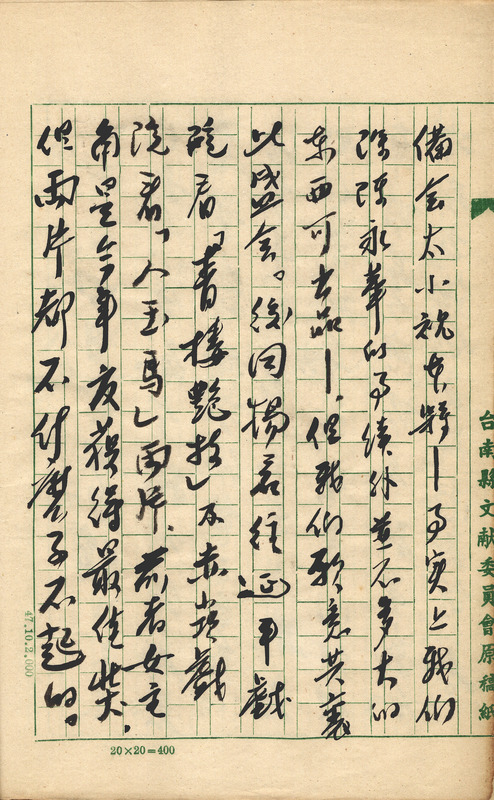 台南縣文献委員會原稿紙
備会太小視本縣—事實上我們
除陳永華的事績外並不多大的
東西可出品—,但我們願意共襄
此盛会。後同楊君往延平戲
院看「青樓艷妓」及赤崁戲
院看「人玉馬」兩片、前者女主
角是今年度獲得最佳獎,
但兩片都不什麼了不起的。
47.10.2,000
20×20=400